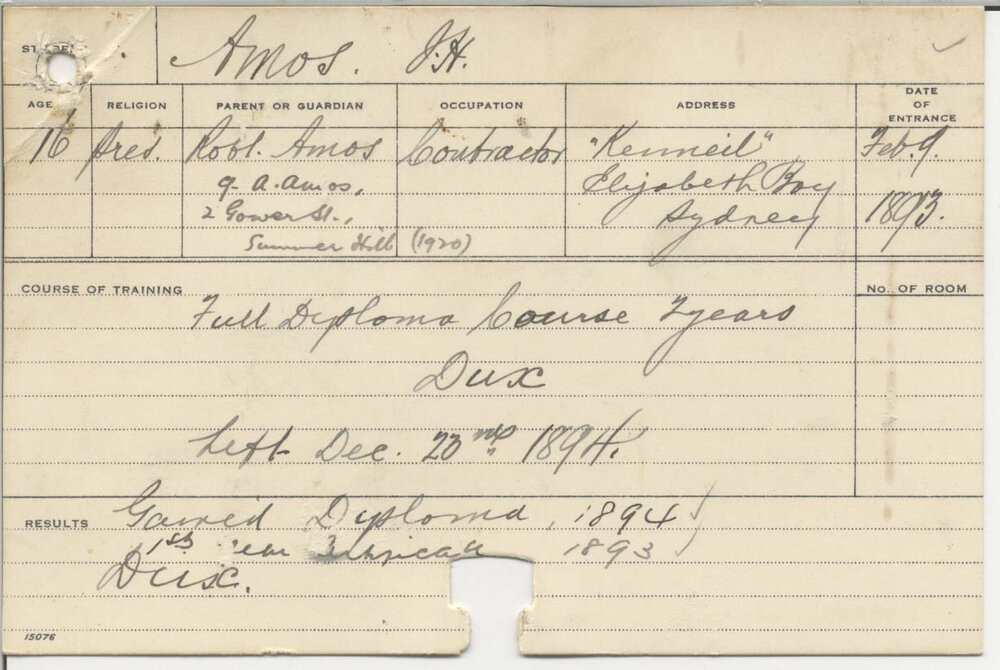 STUDENT Amos. J.H.
AGE RELIGION PARENT OR GUARDIAN OCCUPATION ADDRESS DATE OF ENTRANCE
16 Pres. Robt. Amos Contractor "Kenneil" Feb. 9.
A. Amos, Elizabeth Bay
2 Gower St., Sydney 1893.
Summer Hill (1920)
COURSE OF TRAINING No. OF ROOM
Full Diploma Course 2 years
Dux
Left Dec. 23 1894.
RESULTS Gained Diploma, 1894
1st 1893
Dux.
15076